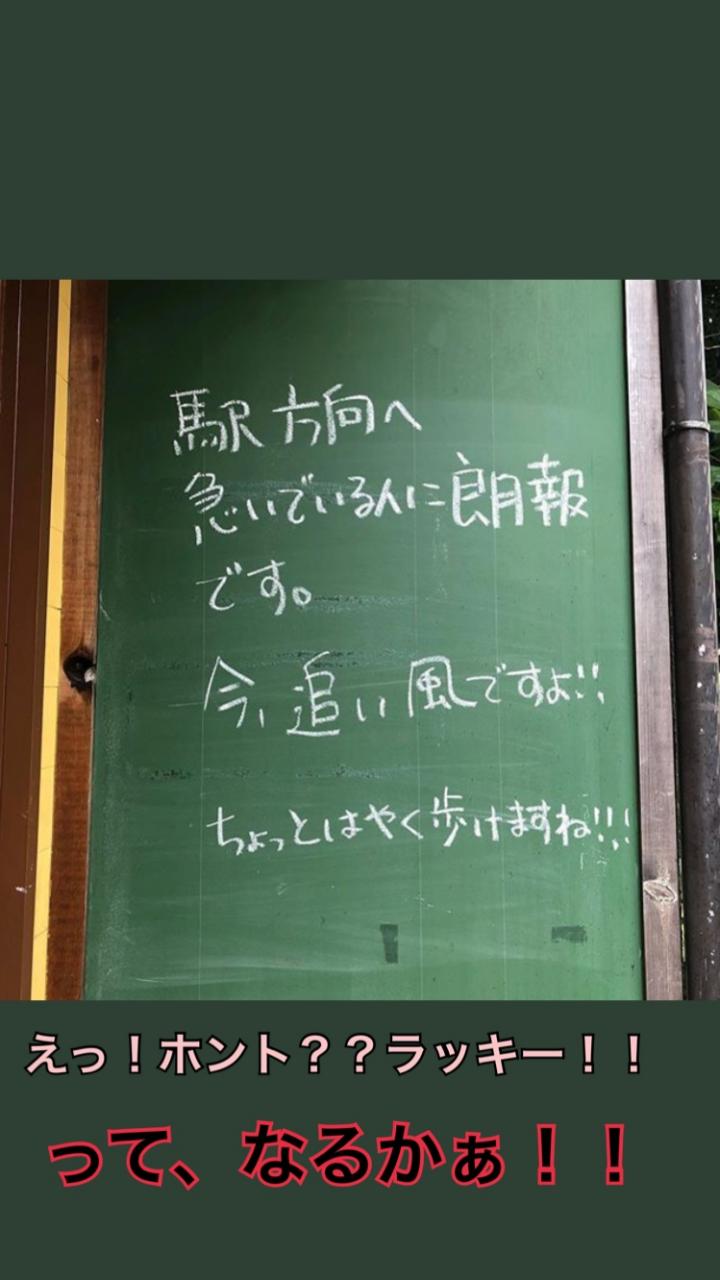 駅方向へ
急いでいる人に朗報
です。
今、追い風ですよ!!
ちょっとはやく歩けますね!!!
えっ！ホント？？ラッキー！！
って、なるかぁ！！